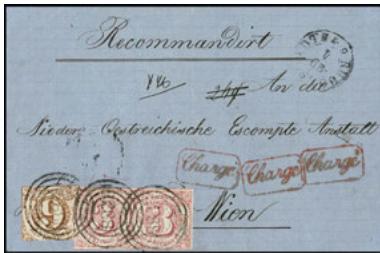 Recommandirt
An die
Nieder-Oestreichische Escompte Anstalt
Chargé Chargé Chargé
Wien
9 3 3